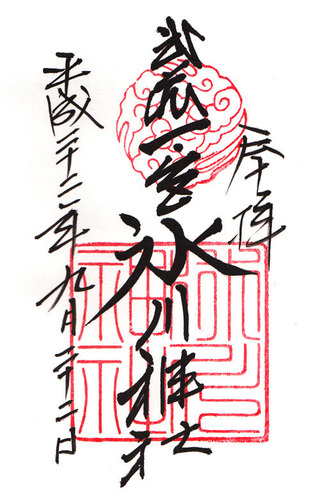 奉拝
武蔵一宮
氷川神社
平成二十二年九月二十二日
氷川神社